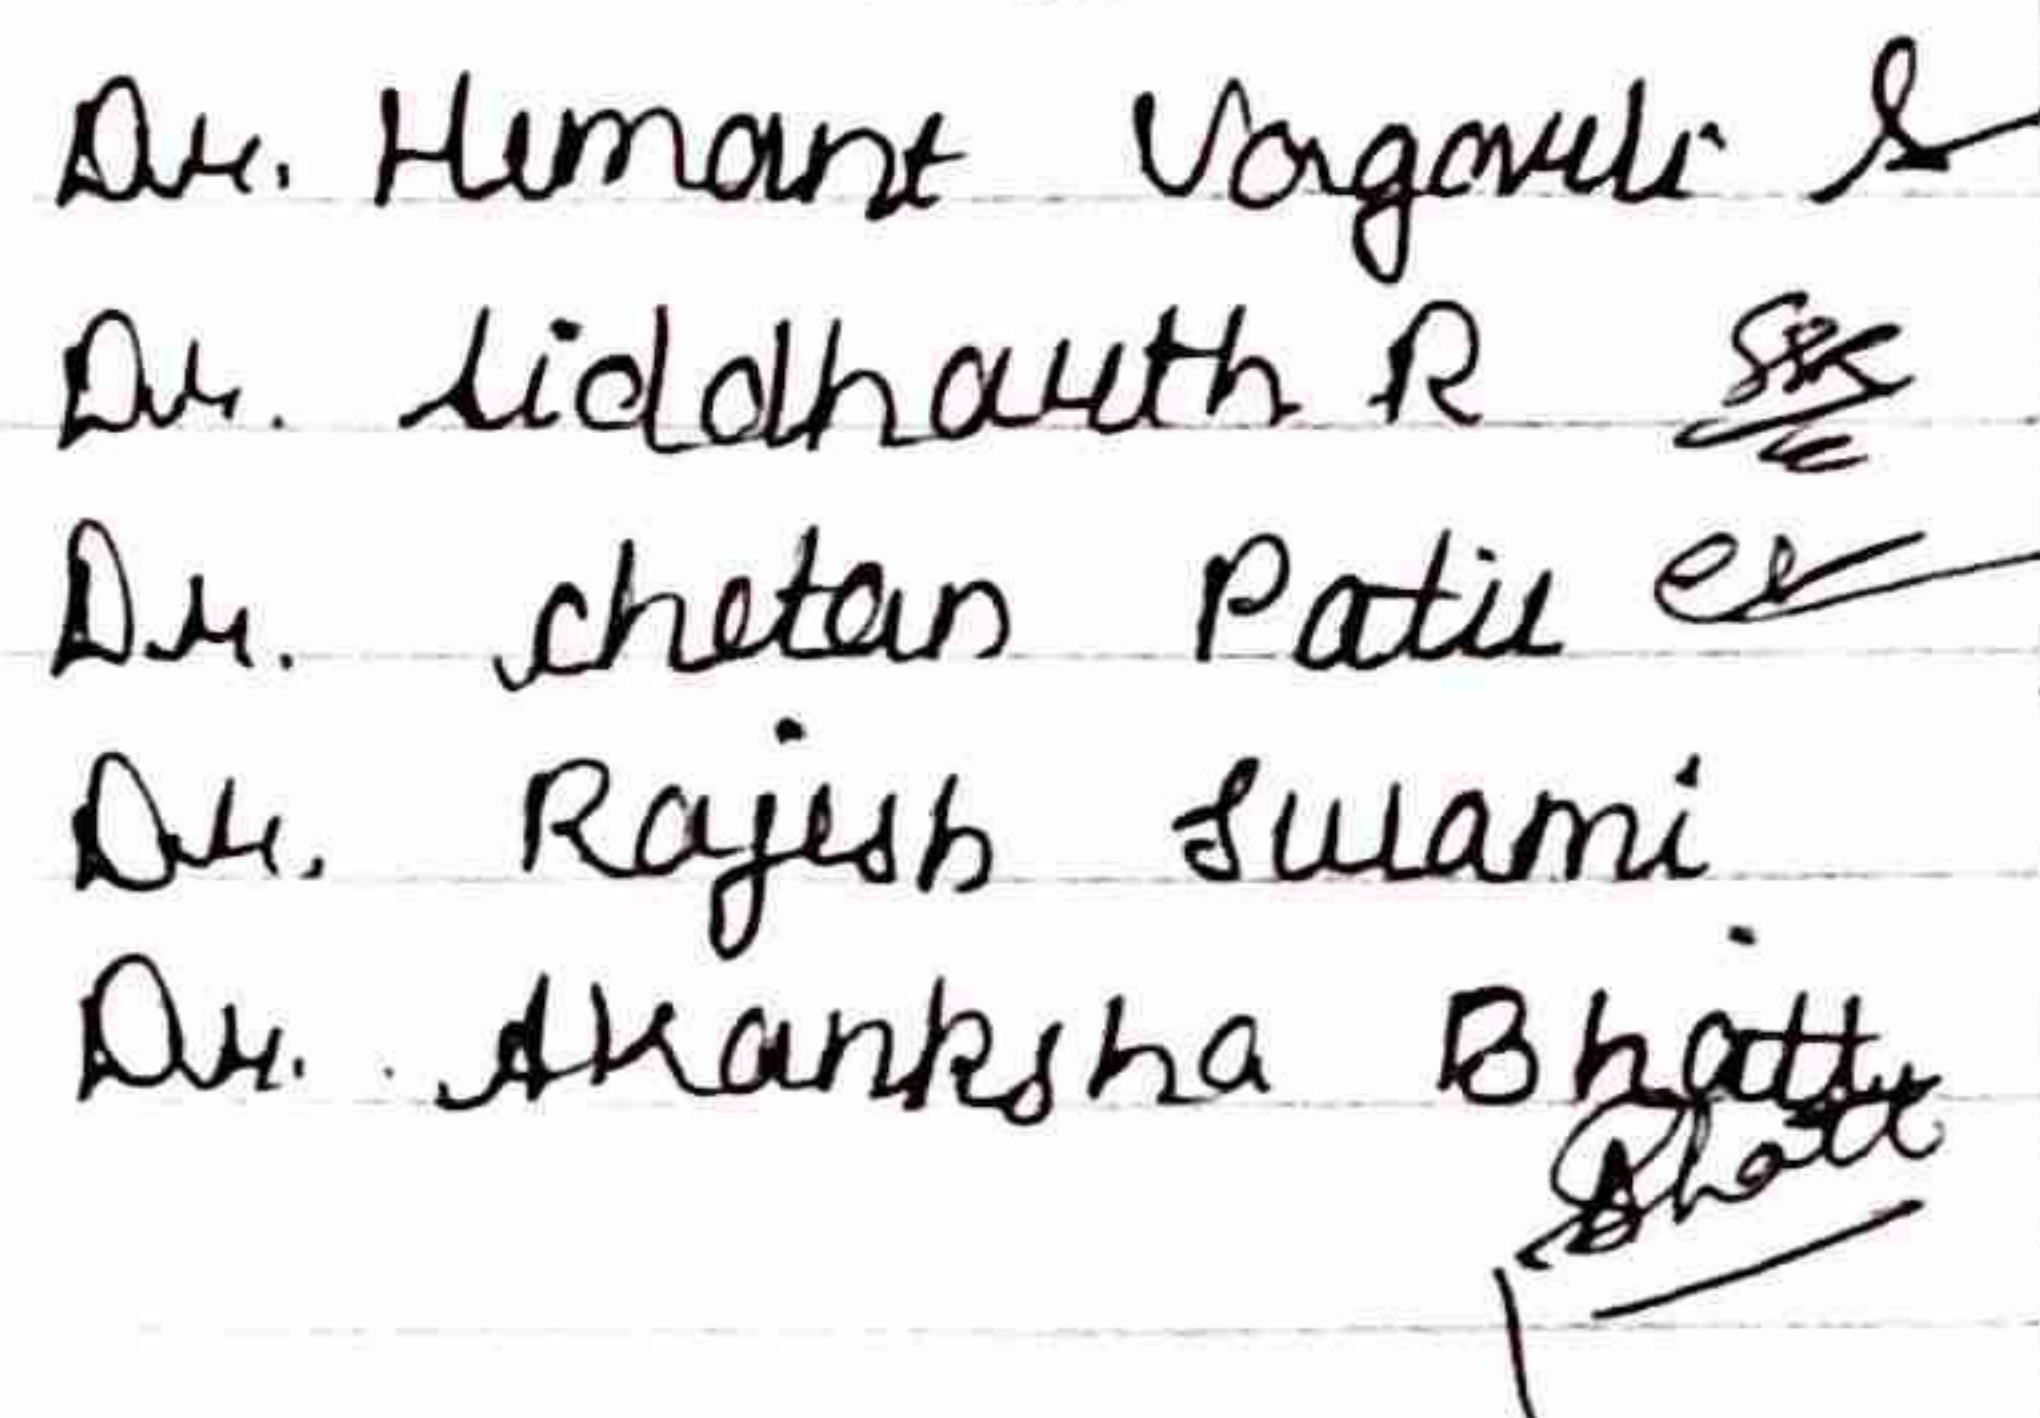 Dr. Hemant
Dr. Siddharth R
Dr. Chetan Patil
Dr. Rajesh Swami
Dr. Akanksha Bhatt
Bhatt